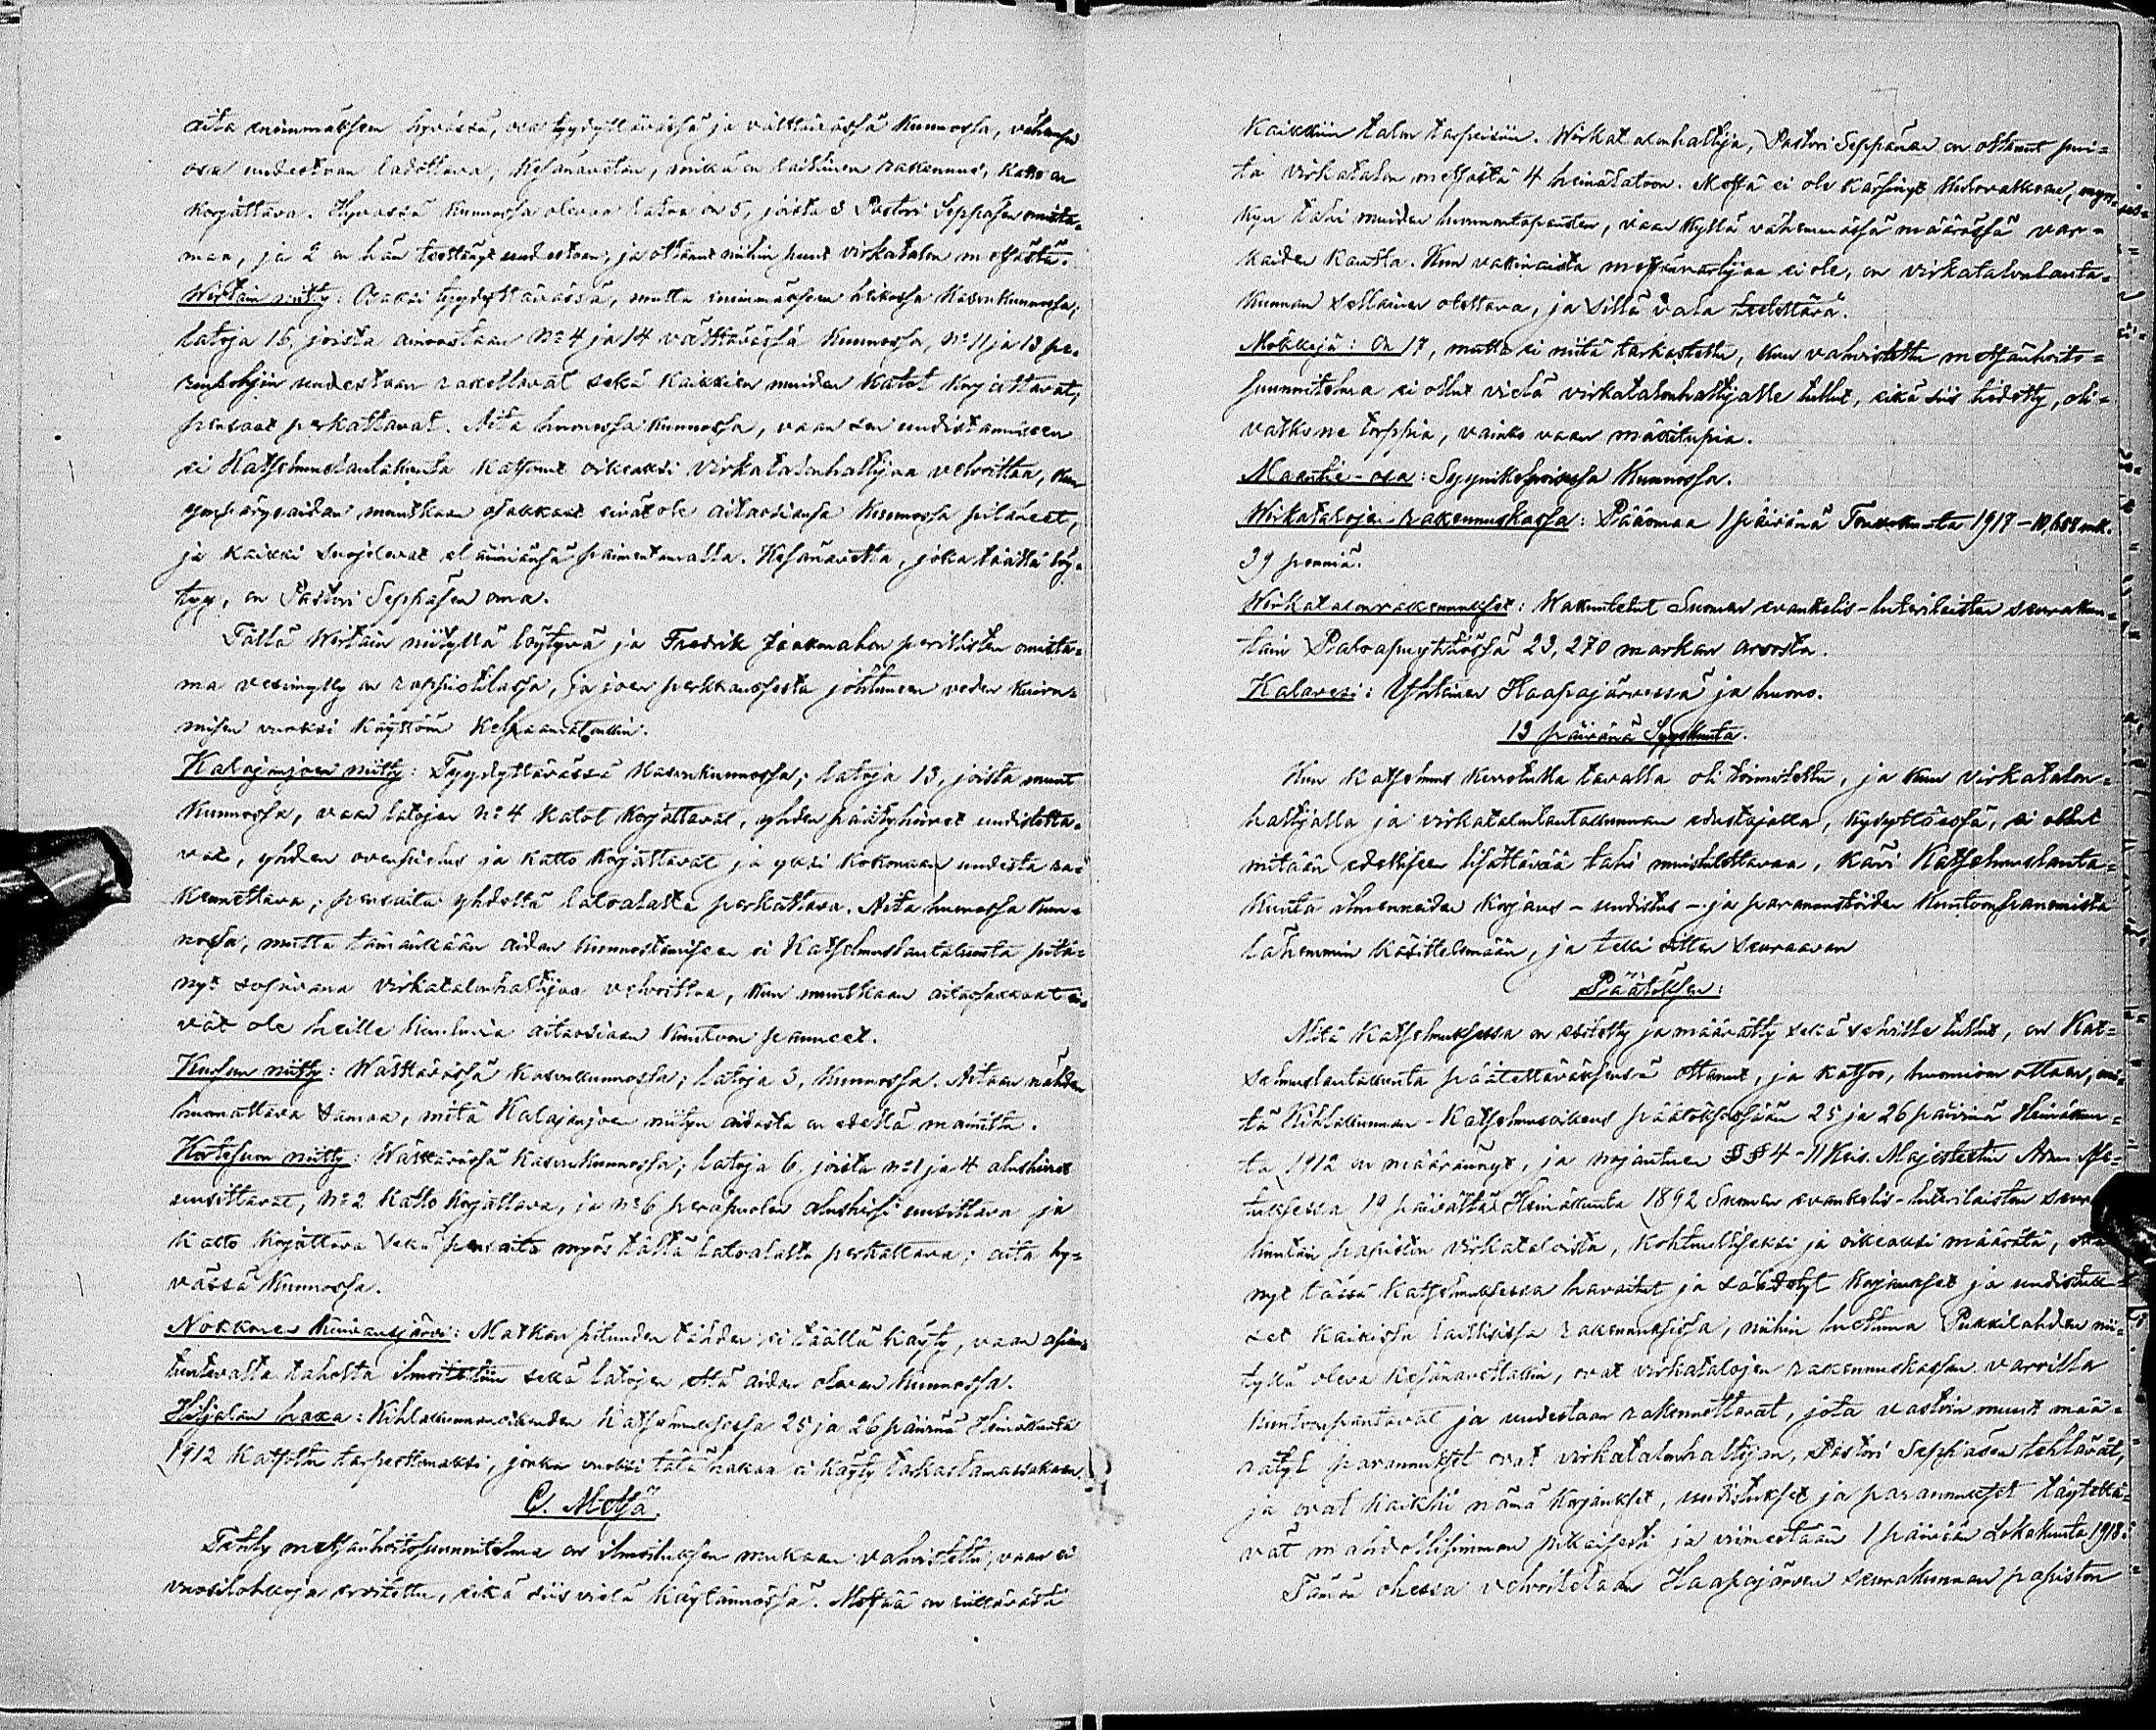 aita enimmäksen hyvässä, osa tyydyttävässä ja välttävässä kunnossa, vähempi
osa uudestaan ladottava; Kesänavetan, mikä on laillinen rakennus, katto on
korjattava. Hyvässä kunnossa olevia latoja on 5, joista 3 Pastori Seppäsen omista-
maa, ja 2 on hän teettänyt uudestaan, ja ottanut niihin puut virkatalon metsästä.
Wertain niitty: Osaksi tyydyttävässä, mutta enimmäksen heikossa kasvukunnossa;
latoja 16, joista ainoastaan No 4 ja 14 välttävässä kunnossa, No 11 ja 13 pe-
rinpohjin uudestaan raketlavat sekä kaikkien muiden katot korjattavat,
pensaat perkattavat. Aita huonossa kunnossa, vaan sen uudistamiseen
ei Katselmuslautakunta katsonut oikeaksi virkatalonhaltijaa velvoittaa, kun
ympärysaidan muutkaan osakkaat eivät ole aitaosiansa kunnossa pitäneet,
ja kaikki suojelevat eläimiänsä paimentamalla. Kesänavetta, joka täällä löy-
tyy, on Pastori Seppäsen oma.
Tällä Wertain niityllä löytyvä ja Fredrik Jaakonahon perillisten omista-
ma vesimylly on rappiotilassa, ja joen perkkauksesta johtuneen veden kuivu-
misen vuoksi käyttöön kelpaamatonkin.
Kalajanjoen niitty: Tyydyttävässä kasvukunnossa; latoja 13, joista muut
kunnossa, vaan latojen No 4 katot korjattavat, yhden päätyhirret uudistetta-
vat, yhden ovenpielus ja katto korjattavat ja yksi kokonaan uudesta ra-
kennettava; pensaita yhdeltä latoalasta perkattava. Aita huonossa kun-
nossa, mutta tämänkään aidan kunnostamiseen ei Katselmuslautakunta pitä-
nyt sopivana virkatalonhaltijaa velvoittaa, kun muutkaan aitaosakkaat ei-
vät ole heille kuuluvia aitaosiaan kuntoon panneet.
niitty: Wälttävässä kasvukunnossa; latoja 3, kunnossa. Aitaan nähden
huomattava samaa, mitä Kalajanjoen niityn aidasta on edellä mainittu.
Kortesuon niitty: Wälttävässä kasvukunnossa; latoja 6, joista no 1 ja 4 alushirret
uusittavat, No 2 katto korjattava, ja No 6 peräpuolen alushirsi uusittava ja
katto korjattava sekä pensaita myös tältä latoalasta perkattava; aita hy-
vässä kunnossa.
Nokkonen kuivausjärvi: Matkan pituuden tähden ei täällä käyty, vaan asian-
tuntevalta taholta ilmoitettiin sekä latojen että aidan olevan kunnossa.
Hiljalan haka: Kihlakunnanoikeuden Katselmuksessa 25 ja 26 päivinä Heinäkuuta
1912 katsottu tarpeettomaksi, jonka vuoksi tätä hakaa ei käyty tarkastamassakaan.
C. Metsä.
Tehty metsänhoitosuunnitelma on ilmoituksen mukaan vahvistettu, vaan ei
vuosilohkoja eroitettu, eikä siis vielä käytännössä. Metsää on riittävästi
kaikkiin talon tarpeisiin. Wirkatalonhaltija, Pastori Seppänen on ottanut pui-
ta virkatalon metsästä 4 heinälatoon. Metsä ei ole kärsinyt kulovalkean, myrs-
kyn tahi muiden luonnontapausten, vaan kyllä vähemmässä määrässä var-
kaiden kautta. Kun vakinaista metsänvartijaa ei ole, on virkatalolauta-
kunnan sellainen otettava, ja sillä vala teetettävä.
Mökkejä: On 17, mutta ei niitä tarkastettu, kun vahvistettu metsänhoito-
suunnitelma ei ollut vielä virkatalonhaltijalle tullut, eikä siis tiedetty, oli-
vatko ne torppia, vainko vaan mäkitupia.
Maantie-osa: Syynikelpoisessa kunnossa.
Wirkatalojen rakennuskassa: Pääomaa 1 päivänä Toukokuuta 1917 - 10,688 mk.
39 penniä.
Wirkatalonrakennukset: Wakuutetut Suomen evankelis-luterilaisten seurakun-
tain Paloapuyhtiössä 23,270 markan arvosta.
Kalavesi: Yhteinen Haapajärvessä ja huono.
13 päivänä Syyskuuta.
Kun katselmus kerrotulla tavalla oli toimitettu, ja kun virkatalon-
haltijalla ja virkatalonlautakunnan edustajalla, kysyttäessä, ei ollut
mitään edelliseen lisättävää tahi muistutettavaa, kävi Katselmuslauta-
kunta ilmenneiden korjaus- uudistus- ja parannustöiden kuntoonpanemista
lähemmin käsittelemään, ja teki sitten seuraavan
Päätöksen:
Mitä Katselmuksessa on esitetty ja määrätty sekä selville tullut, on Kat-
selmuslautakunta päätettäväksensä ottanut, ja katsoo, huomioon ottaen, mi-
tä Kihlakunnan-Katselmusoikeus päätöksessään 25 ja 26 päivinä Heinäkuu-
ta 1912 on määrännyt, ja nojautuen §§ 4-11 Keis. Majesteetin Arm. Ase-
tuksessa 19 päivältä Heinäkuuta 1892 Suomen evankelis-luterilaisten seura-
kuntain papiston virkataloista, kohtuulliseksi ja oikeaksi määrätä, että
nyt tässä Katselmuksessa havaitut ja säädetyt korjaukset ja uudistuk-
set kaikissa laillisissa rakennuksissa, niihin luettuna Pukkilahden nii-
tyllä oleva kesänavettakin, ovat virkatalojen rakennuskassan varoilla
kuntoonpantavat ja uudestaan rakennettavat, jota vastoin muut mää-
rätyt parannukset ovat virkatalonhaltijan, Pastori Seppäsen tehtävät,
ja ovat kaikki nämä korjaukset, uudistukset ja parannukset täytettä-
vät mahdollisimman pikaisesti ja viimestään 1 päivään Lokakuuta 1918.
Tämän ohessa velvoitetaan Haapajärven seurakunnan papiston